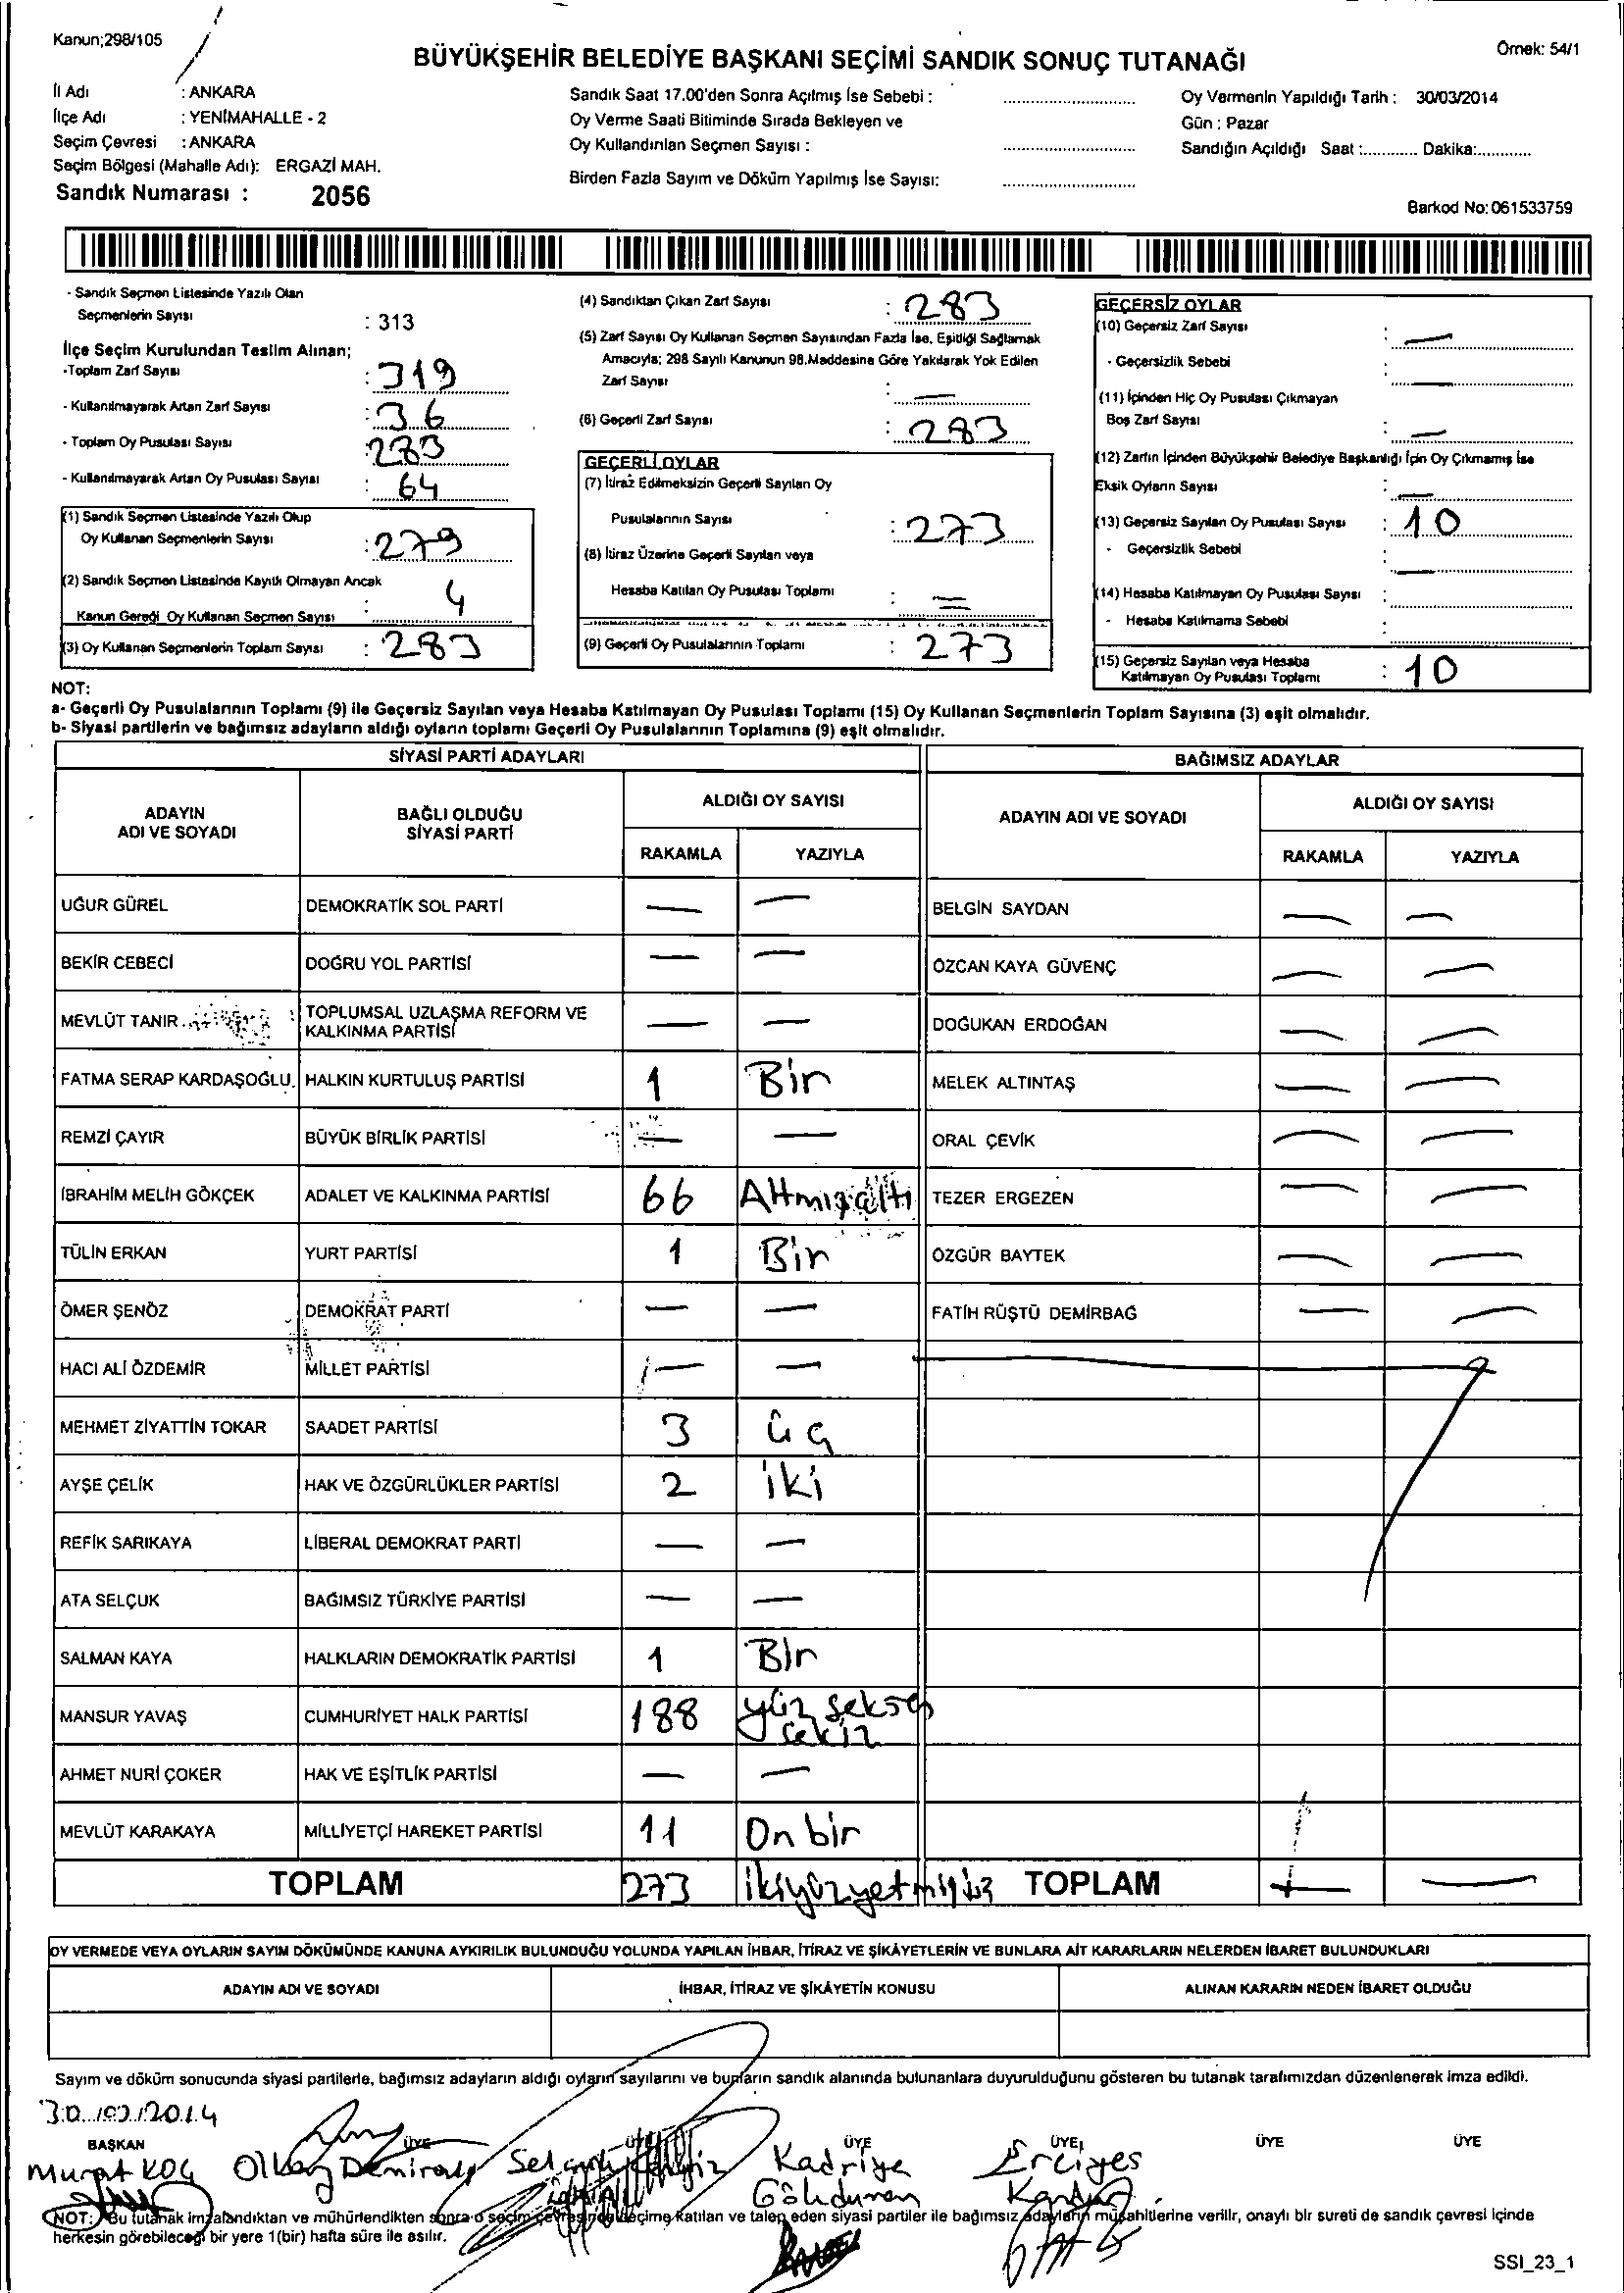 Kanun;298/105
Örnek: 54/1
BÜYÜKŞEHİR BELEDİYE BAŞKANI SEÇİMİ SANDIK SONUÇ TUTANAĞI
İl Adı : ANKARA
İlçe Adı : YENİMAHALLE - 2
Seçim Çevresi : ANKARA
Seçim Bölgesi (Mahalle Adı): ERGAZİ MAH.
Sandık Numarası : 2056
Sandık Saat 17.00'den Sonra Açılmış İse Sebebi :
Oy Verme Saati Bitiminde Sırada Bekleyen ve
Oy Kullandırılan Seçmen Sayısı :
Birden Fazla Sayım ve Döküm Yapılmış İse Sayısı:
Oy Vermenin Yapıldığı Tarih : 30/03/2014
Gün : Pazar
Sandığın Açıldığı Saat :............ Dakika:............
Barkod No:061533759
- Sandık Seçmen Listesinde Yazılı Olan
Seçmenlerin Sayısı : 313
İlçe Seçim Kurulundan Teslim Alınan;
-Toplam Zarf Sayısı : 319
- Kullanılmayarak Artan Zarf Sayısı : 36
- Toplam Oy Pusulası Sayısı : 283
- Kullanılmayarak Artan Oy Pusulası Sayısı : 64
(1) Sandık Seçmen Listesinde Yazılı Olup
Oy Kullanan Seçmenlerin Sayısı : 279
(2) Sandık Seçmen Listesinde Kayıtlı Olmayan Ancak
Kanun Gereği Oy Kullanan Seçmen Sayısı : 4
(3) Oy Kullanan Seçmenlerin Toplam Sayısı : 283
(4) Sandıktan Çıkan Zarf Sayısı : 283
(5) Zarf Sayısı Oy Kullanan Seçmen Sayısından Fazla İse, Eşitliği Sağlamak
Amacıyla; 298 Sayılı Kanunun 98.Maddesine Göre Yakılarak Yok Edilen
Zarf Sayısı : —
(6) Geçerli Zarf Sayısı : 283
GEÇERLİ OYLAR
(7) İtiraz Edilmeksizin Geçerli Sayılan Oy
Pusulalarının Sayısı : 273
(8) İtiraz Üzerine Geçerli Sayılan veya
Hesaba Katılan Oy Pusulası Toplamı : =
(9) Geçerli Oy Pusulalarının Toplamı : 273
GEÇERSİZ OYLAR
(10) Geçersiz Zarf Sayısı : —
- Geçersizlik Sebebi : —
(11) İçinden Hiç Oy Pusulası Çıkmayan
Boş Zarf Sayısı : —
(12) Zarfın İçinden Büyükşehir Belediye Başkanlığı İçin Oy Çıkmamış İse
Eksik Oyların Sayısı : —
(13) Geçersiz Sayılan Oy Pusulası Sayısı : 10
- Geçersizlik Sebebi : —
(14) Hesaba Katılmayan Oy Pusulası Sayısı :
- Hesaba Katılmama Sebebi :
(15) Geçersiz Sayılan veya Hesaba
Katılmayan Oy Pusulası Toplamı : 10
NOT:
a- Geçerli Oy Pusulalarının Toplamı (9) ile Geçersiz Sayılan veya Hesaba Katılmayan Oy Pusulası Toplamı (15) Oy Kullanan Seçmenlerin Toplam Sayısına (3) eşit olmalıdır.
b- Siyasi partilerin ve bağımsız adayların aldığı oyların toplamı Geçerli Oy Pusulalarının Toplamına (9) eşit olmalıdır.
SİYASİ PARTİ ADAYLARI BAĞIMSIZ ADAYLAR
ADAYIN ADI VE SOYADI BAĞLI OLDUĞU SİYASİ PARTİ ALDIĞI OY SAYISI RAKAMLA YAZIYLA ADAYIN ADI VE SOYADI ALDIĞI OY SAYISI RAKAMLA YAZIYLA
UĞUR GÜREL DEMOKRATİK SOL PARTİ — — BELGİN SAYDAN — —
BEKİR CEBECİ DOĞRU YOL PARTİSİ — — ÖZCAN KAYA GÜVENÇ — —
MEVLÜT TANIR TOPLUMSAL UZLAŞMA REFORM VE KALKINMA PARTİSİ — — DOĞUKAN ERDOĞAN — —
FATMA SERAP KARDAŞOĞLU HALKIN KURTULUŞ PARTİSİ 1 Bir MELEK ALTINTAŞ — —
REMZİ ÇAYIR BÜYÜK BİRLİK PARTİSİ — — ORAL ÇEVİK — —
İBRAHİM MELİH GÖKÇEK ADALET VE KALKINMA PARTİSİ 66 Altmışaltı TEZER ERGEZEN — —
TÜLİN ERKAN YURT PARTİSİ 1 Bir ÖZGÜR BAYTEK — —
ÖMER ŞENÖZ DEMOKRAT PARTİ — — FATİH RÜŞTÜ DEMİRBAĞ — —
HACI ALİ ÖZDEMİR MİLLET PARTİSİ — —
MEHMET ZİYATTİN TOKAR SAADET PARTİSİ 3 üç
AYŞE ÇELİK HAK VE ÖZGÜRLÜKLER PARTİSİ 2 iki
REFİK SARIKAYA LİBERAL DEMOKRAT PARTİ — —
ATA SELÇUK BAĞIMSIZ TÜRKİYE PARTİSİ — —
SALMAN KAYA HALKLARIN DEMOKRATİK PARTİSİ 1 Bir
MANSUR YAVAŞ CUMHURİYET HALK PARTİSİ 188 yüz seksen sekiz
AHMET NURİ ÇOKER HAK VE EŞİTLİK PARTİSİ — —
MEVLÜT KARAKAYA MİLLİYETÇİ HAREKET PARTİSİ 11 On bir
TOPLAM 273 ikiyüzyetmişüç TOPLAM — —
OY VERMEDE VEYA OYLARIN SAYIM DÖKÜMÜNDE KANUNA AYKIRILIK BULUNDUĞU YOLUNDA YAPILAN İHBAR, İTİRAZ VE ŞİKÂYETLERİN VE BUNLARA AİT KARARLARIN NELERDEN İBARET BULUNDUKLARI
ADAYIN ADI VE SOYADI İHBAR, İTİRAZ VE ŞİKÂYETİN KONUSU ALINAN KARARIN NEDEN İBARET OLDUĞU
Sayım ve döküm sonucunda siyasi partilerle, bağımsız adayların aldığı oyların sayılarını ve bunların sandık alanında bulunanlara duyurulduğunu gösteren bu tutanak tarafımızdan düzenlenerek imza edildi.
30/03/2014
BAŞKAN ÜYE ÜYE ÜYE ÜYE ÜYE ÜYE
Murat KOÇ Olkay Demiralp Kadriye Gökduman Erciyes
NOT: Bu tutanak imzalandıktan ve mühürlendikten sonra o seçim çevresinde seçime katılan ve talep eden siyasi partiler ile bağımsız adayların müşahitlerine verilir, onaylı bir sureti de sandık çevresi içinde
herkesin görebileceği bir yere 1(bir) hafta süre ile asılır.
SSI_23_1